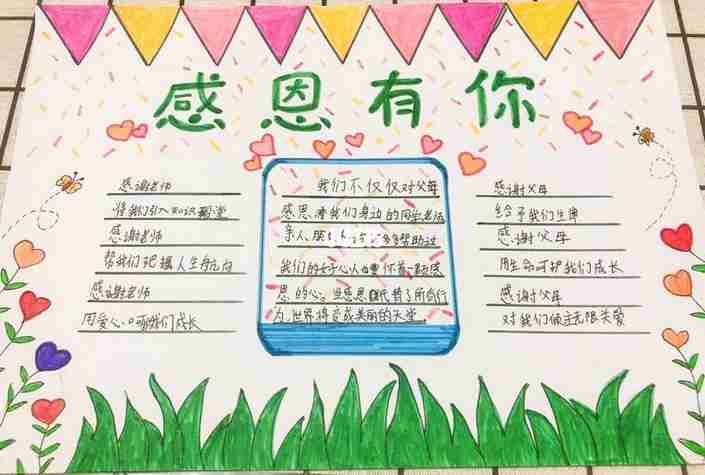 感恩有你
感谢老师
将我们引入知识殿堂
感谢老师
帮我们把握人生航向
感谢老师
用爱心呵护我们成长
我们不仅仅对父母
感恩,对我们身边的同学老师
亲人、朋 帮助过
我们的好心人也要怀着一颗感
恩的心。当感恩 代替了所有行
为,世界将变成美丽的天堂
感谢父母
给予我们生命
感谢父母
用生命呵护我们成长
感谢父母
对我们倾注无限关爱